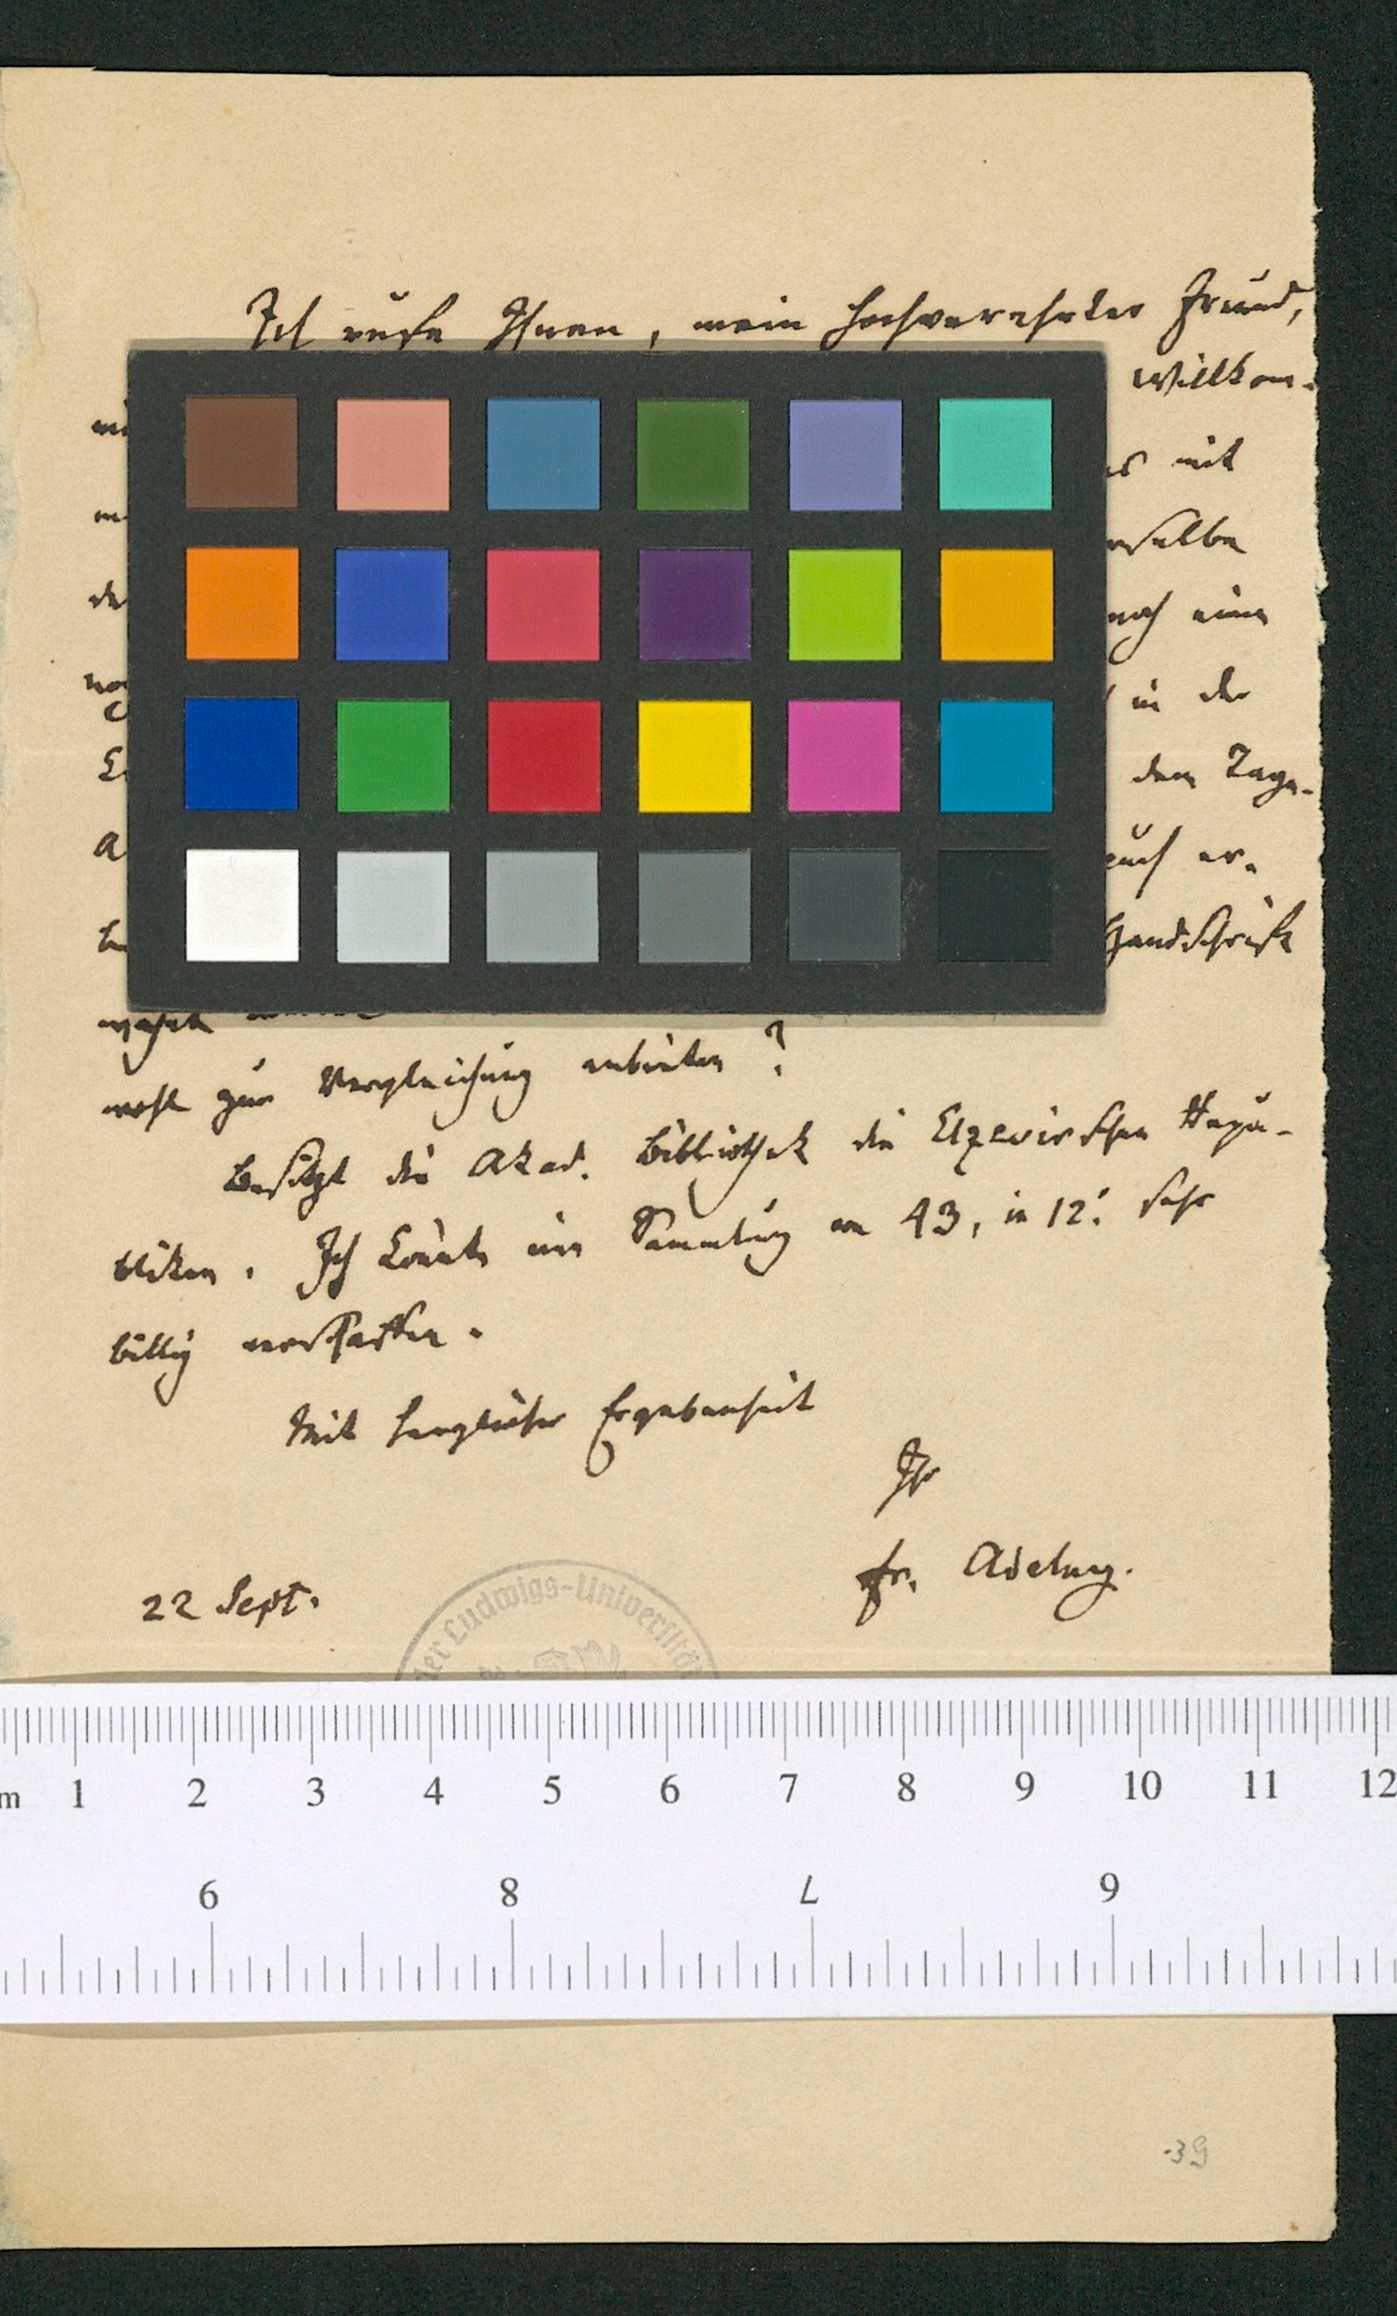 Ich rufe Ihnen, mein hochverehrter Freund,
Willkom-
mit
dieselbe
noch eine
in der
dem Tage-
auch er-
Handschrift
wohl zur Vergleichung anbieten?
Besitzt die Akad. Bibliothek die Elzevirschen Repu-
bliken. Ich könnte eine Sammlung von 43, in 12.° sehr
billig verschaffen.
Mit herzlicher Ergebenheit
Ihr
Fr. Adelung.
22 Sept.
der Ludwigs-Universität
m 1 2 3 4 5 6 7 8 9 10 11 12
9 8 7 6
39